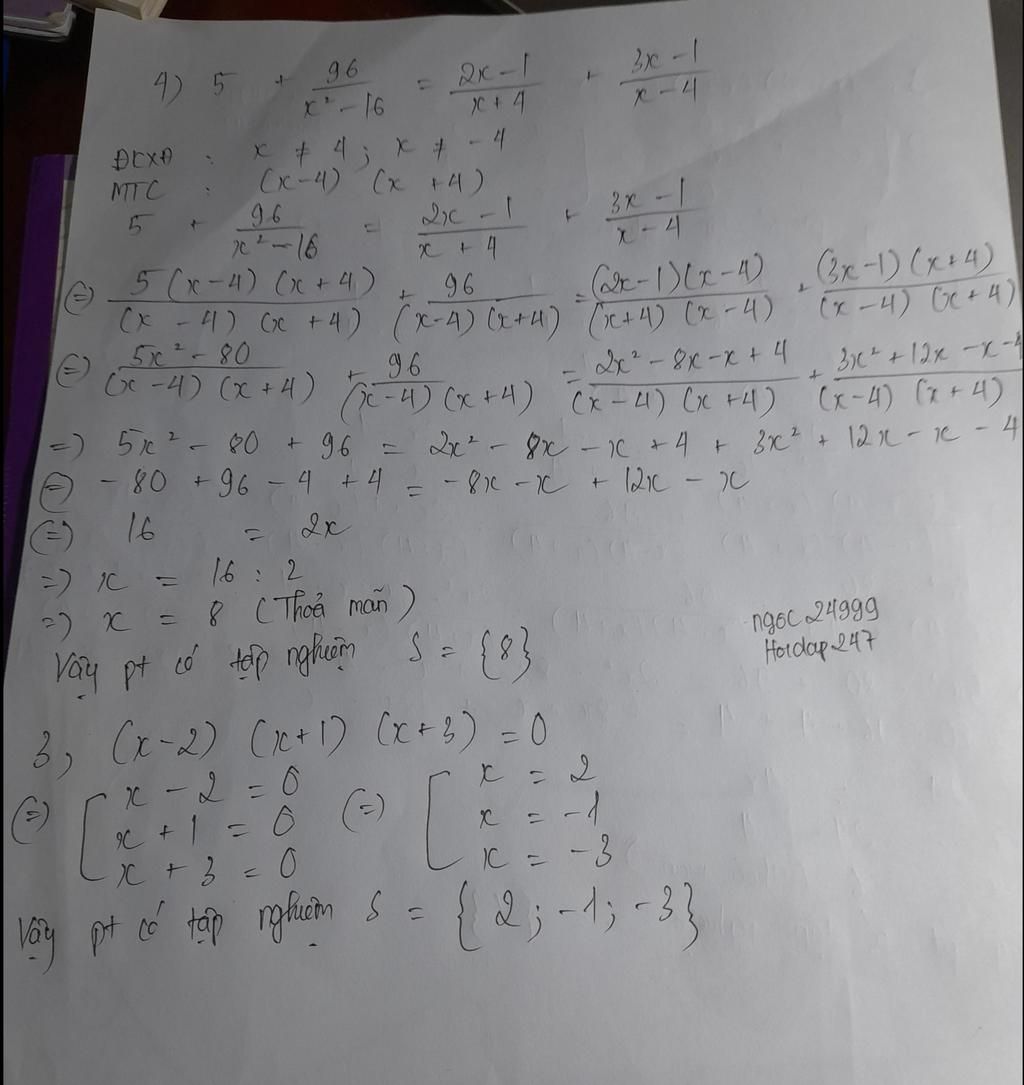 4) 5 + 96/(x² - 16) = (2x - 1)/(x + 4) + (3x - 1)/(x - 4)
ĐKXĐ : x ≠ 4 ; x ≠ - 4
MTC : (x - 4) (x + 4)
5 + 96/(x² - 16) = (2x - 1)/(x + 4) + (3x - 1)/(x - 4)
(=) 5 (x - 4) (x + 4)/(x - 4) (x + 4) + 96/(x - 4) (x + 4) = (2x - 1) (x - 4)/(x + 4) (x - 4) + (3x - 1) (x + 4)/(x - 4) (x + 4)
(=) 5x² - 80/(x - 4) (x + 4) + 96/(x - 4) (x + 4) = 2x² - 8x - x + 4/(x - 4) (x + 4) + 3x² + 12x - x - 4/(x - 4) (x + 4)
=) 5x² - 80 + 96 = 2x² - 8x - x + 4 + 3x² + 12x - x - 4
(=) - 80 + 96 - 4 + 4 = - 8x - x + 12x - x
(=) 16 = 2x
=) x = 16 : 2
=) x = 8 (Thoả mãn)
Vậy pt có tập nghiệm S = {8}
ngoc24999
Hoidap247
3, (x - 2) (x + 1) (x + 3) = 0
(=) [ x - 2 = 0 (=) [ x = 2
x + 1 = 0 x = -1
x + 3 = 0 x = -3
Vậy pt có tập nghiệm S = {2 ; -1 ; -3}